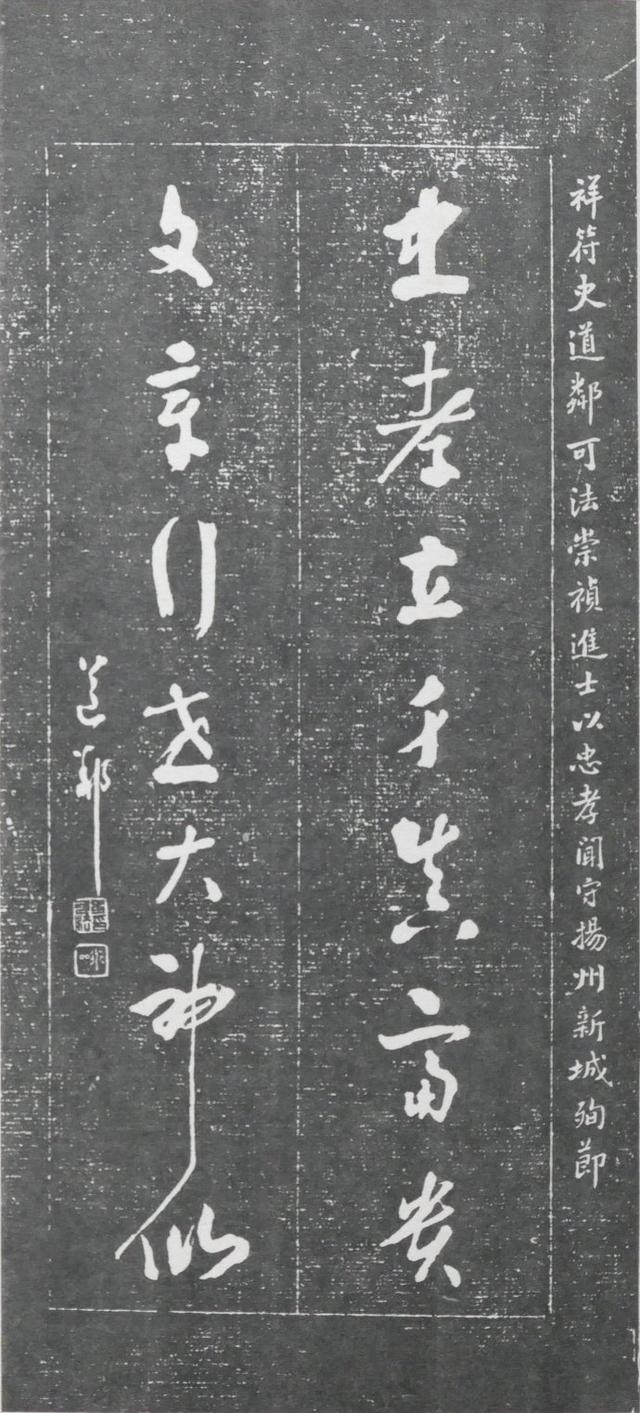 祥符史道鄰可法崇禎進士以忠孝聞守揚州新城殉節
忠孝立身真富貴
文章行世大神仙
道鄰